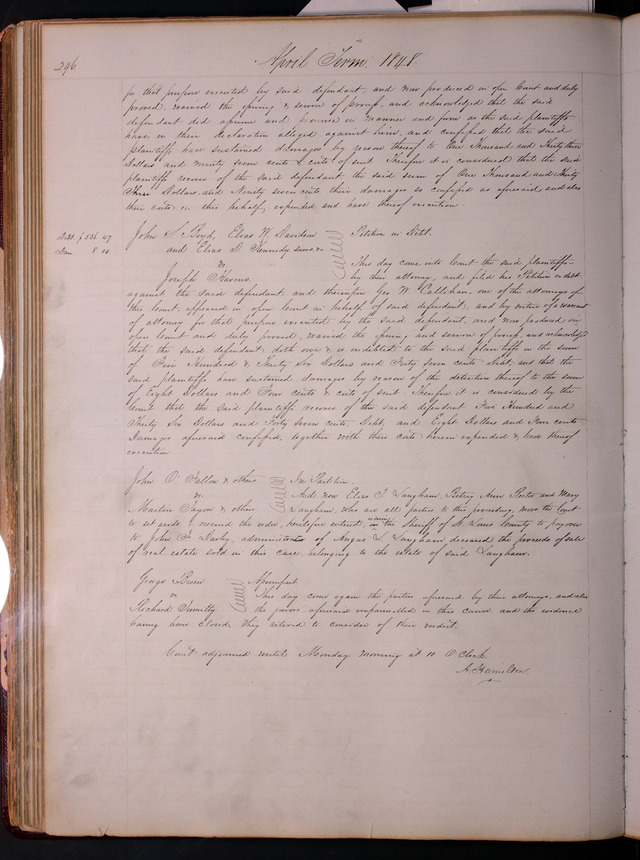 296 April Term 1848.
for that purpose executed by said defendant, and now produced in open Court and duly
proved, waived the opening & service of process, and acknowledged that the said
defendant did assume and promise in manner and form as the said plaintiffs
have in their declaration alleged against him, and confessed that the said
plaintiffs have sustained damages by reason thereof to One Thousand and Thirty three
Dollars and ninety seven cents & costs of suit Therefore it is considered that the said
plaintiffs recover of the said defendant the said sum of One Thousand and Thirty
Three Dollars and Ninety seven cents their damages so confessed as aforesaid and also
their costs in this behalf expended and have thereof execution.
John S. Boyd, Elias W. Davidson Petition in Debt.
Debt. $536 47
and Elias D. Kennedy, surv. &
Dam 8 04
vs This day came into Court the said plaintiffs
Joseph Havens by their attorney, and filed his Petition in debt
against the said defendant, and thereupon Geo W. Callahan, one of the attorneys of
this Court, appeared in open Court in behalf of said defendant, and by virtue of a warrant
of attorney for that purpose executed by the said defendant, and now produced in
open Court and duly proved, waived the opening and service of process, and acknowledged
that the said defendant doth owe & is indebted to the said plaintiffs in the sum
of Five Hundred & Thirty Six Dollars and Forty seven cents Debt, and that the
said plaintiffs have sustained damages by reason of the detention thereof to the sum
of Eight Dollars and Four cents & costs of suit Therefore it is considered by the
Court that the said plaintiffs recover of the said defendant Five Hundred and
Thirty Six Dollars and Forty seven cents, Debt, and Eight Dollars and Four cents
Damages aforesaid confessed, together with their costs herein expended & have thereof
execution
John O'Fallon & others In Partition.
vs And now Elias T. Langham, Ann and Mary
Martin & others Langham, who are all parties to this proceeding, move the Court
to set aside & rescind the order, heretofore entered, ordering the Sheriff of St. Louis County to pay over
to John F. Darby, administrator of Angus L. Langham, deceased the proceeds of sale
of real estate sold in this case belonging to the estate of said Langham.
George Breen Assumpsit
vs This day come again the parties aforesaid by their attorneys, and also
Richard the jurors aforesaid empannelled in this cause, and the evidence
having been closed they retired to consider of their verdict.
Court adjourned until Monday morning at 10 O'Clock.
A. Hamilton